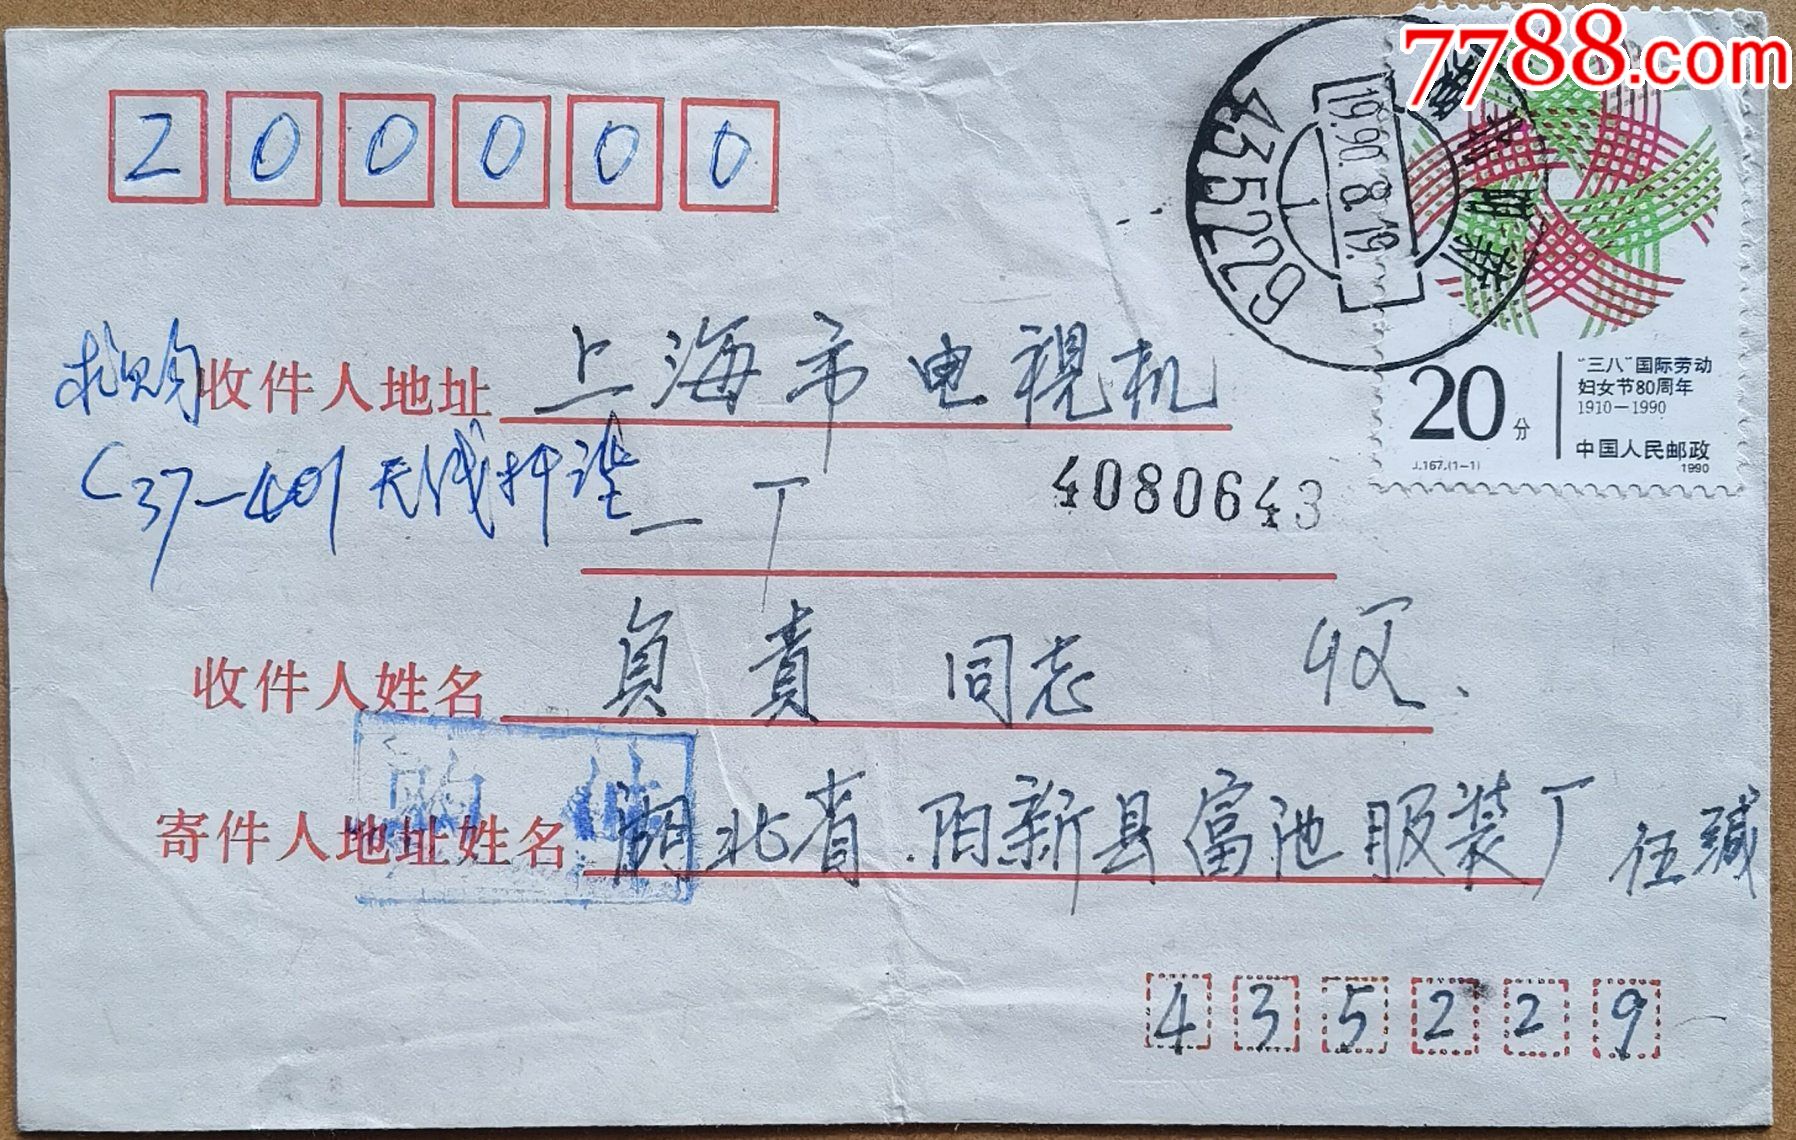 7788.com
200000
435229
1990.8.19.
1
湖北阳新
"三八"国际劳动
妇女节80周年
1910—1990
20分
中国人民邮政
J.167.(1-1) 1990
求购
C37-401 天线
收件人地址 上海市电视机
一厂
4080643
收件人姓名 负责 同志 收
购 件
寄件人地址姓名 湖北省.阳新县富池服装厂 伍缄
435229